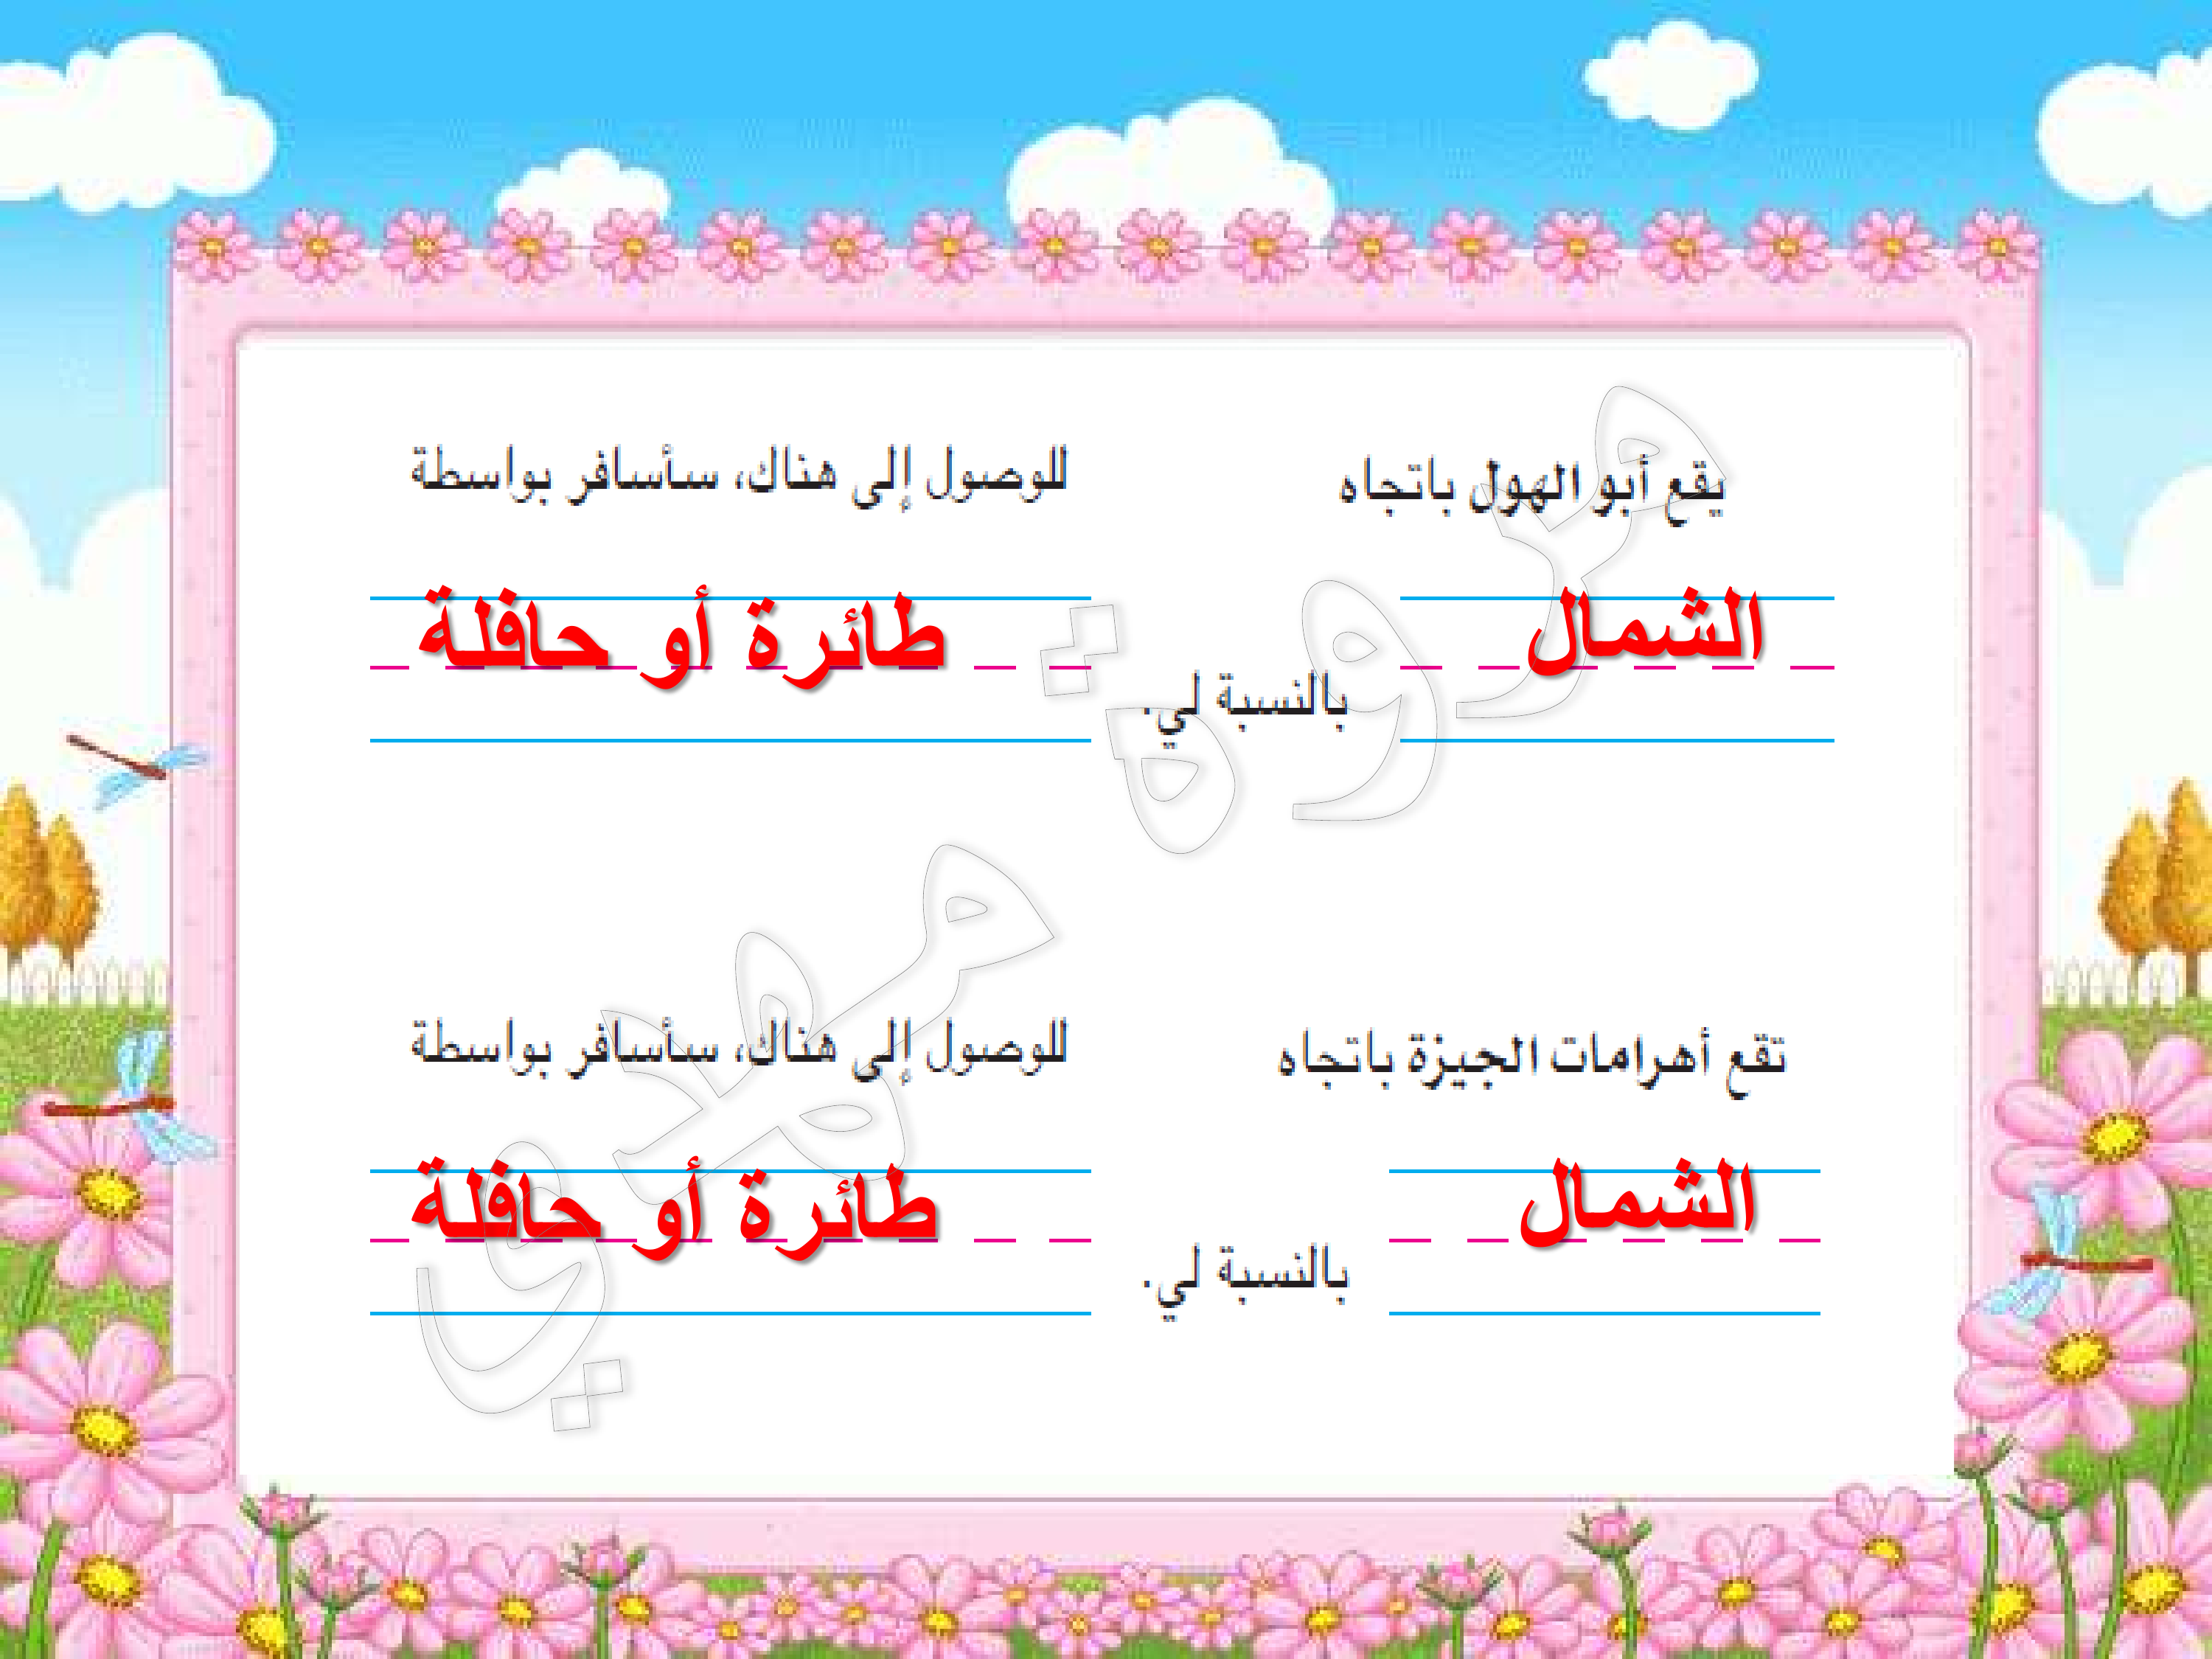 يقع أبو الهول باتجاه
الشمال
بالنسبة لي.
للوصول إلى هناك، سأسافر بواسطة
طائرة أو حافلة
تقع أهرامات الجيزة باتجاه
الشمال
بالنسبة لي.
للوصول إلى هناك، سأسافر بواسطة
طائرة أو حافلة
مروة مهدي